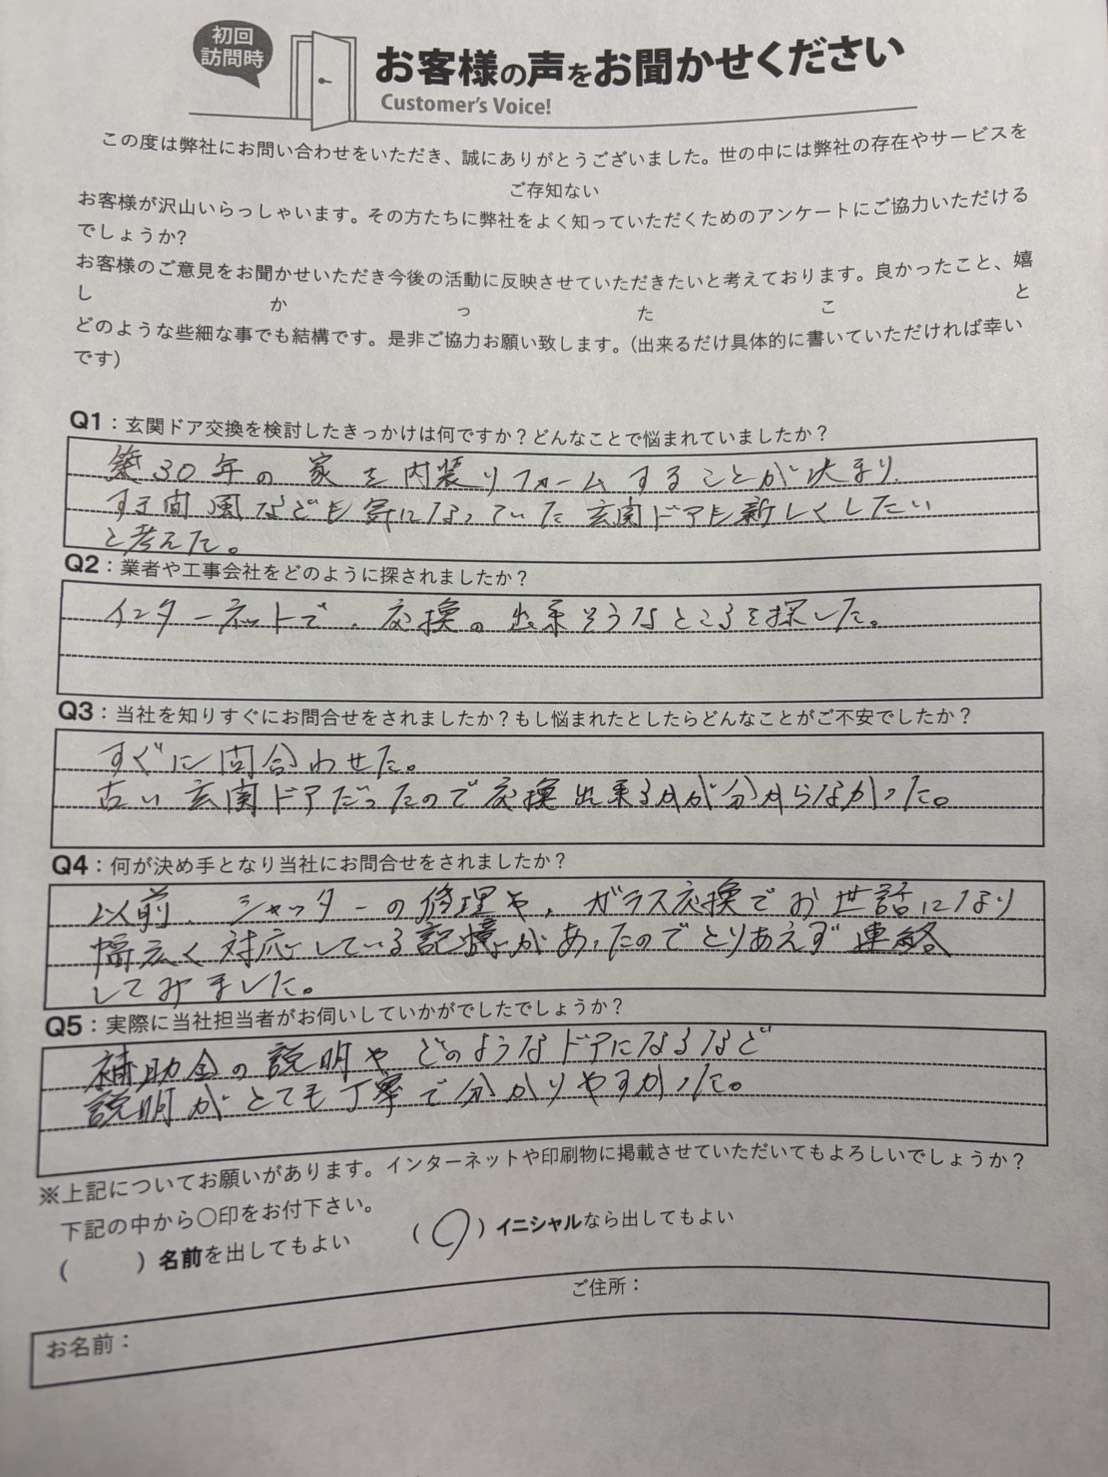 初回
訪問時
お客様の声をお聞かせください
Customer's Voice!
この度は弊社にお問い合わせをいただき、誠にありがとうございました。世の中には弊社の存在やサービスを
ご存知ない
お客様が沢山いらっしゃいます。その方たちに弊社をよく知っていただくためのアンケートにご協力いただける
でしょうか?
お客様のご意見をお聞かせいただき今後の活動に反映させていただきたいと考えております。良かったこと、嬉
しかったこと
どのような些細な事でも結構です。是非ご協力お願い致します。(出来るだけ具体的に書いていただければ幸い
です)
Q1：玄関ドア交換を検討したきっかけは何ですか？どんなことで悩まれていましたか？
築30年の家を内装リフォームすることが決まり、
すき間風なども気になっていた玄関ドアも新しくしたい
と考えた。
Q2：業者や工事会社をどのように探されましたか？
インターネットで、交換の出来そうなところを探した。
Q3：当社を知りすぐにお問合せをされましたか？もし悩まれたとしたらどんなことがご不安でしたか？
すぐに問合わせた。
古い玄関ドアだったので交換出来るかが分からなかった。
Q4：何が決め手となり当社にお問合せをされましたか？
以前、シャッターの修理や、ガラス交換でお世話になり
幅広く対応している記憶があったのでとりあえず連絡
してみました。
Q5：実際に当社担当者がお伺いしていかがでしたでしょうか？
補助金の説明やどのようなドアになるなど
説明がとても丁寧で分かりやすかった。
※上記についてお願いがあります。インターネットや印刷物に掲載させていただいてもよろしいでしょうか？
下記の中から〇印をお付下さい。
(　　)名前を出してもよい　(〇)イニシャルなら出してもよい
お名前：　ご住所：